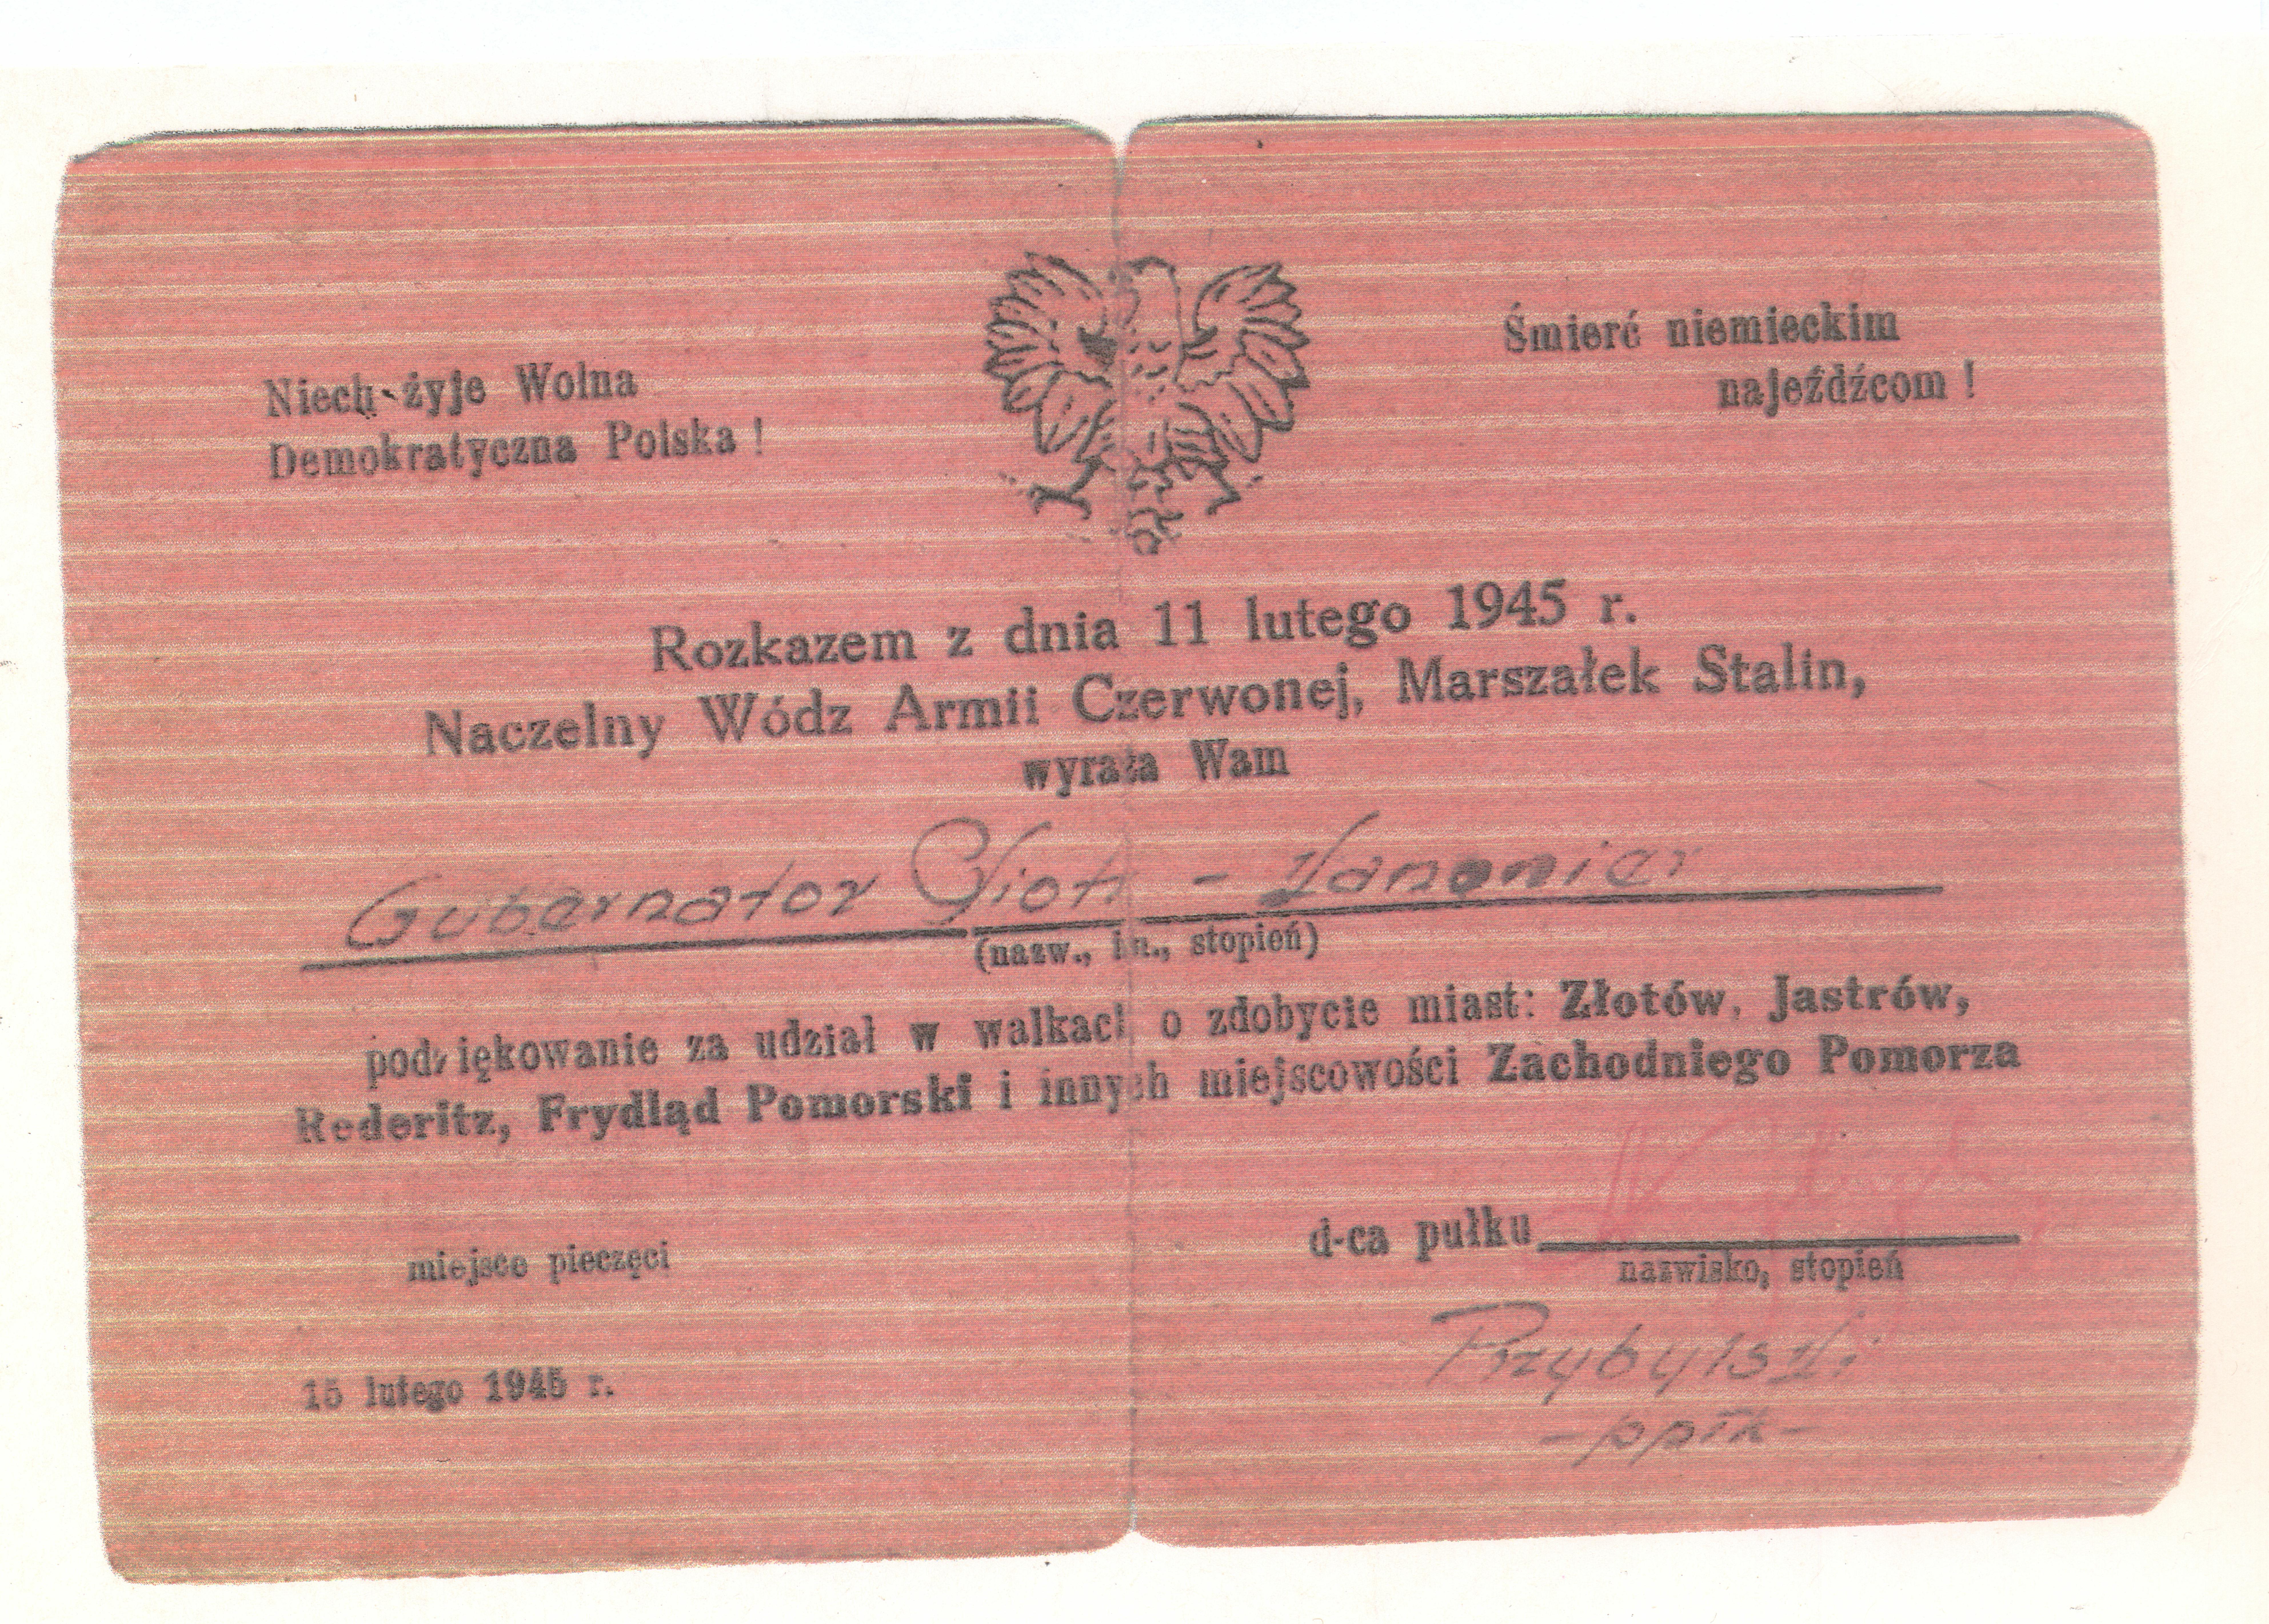 Niech żyje Wolna
Demokratyczna Polska !
Śmierć niemieckim
najeźdźcom !
Rozkazem z dnia 11 lutego 1945 r.
Naczelny Wódz Armii Czerwonej, Marszałek Stalin,
wyraża Wam
Gubernator Piotr - Kanonier
(nazw., im., stopień)
podziękowanie za udział w walkach o zdobycie miast: Złotów, Jastrów,
Rederitz, Frydląd Pomorski i innych miejscowości Zachodniego Pomorza
d-ca pułku
miejsce pieczęci
nazwisko, stopień
Przybylski
15 lutego 1945 r.
-ppłk-